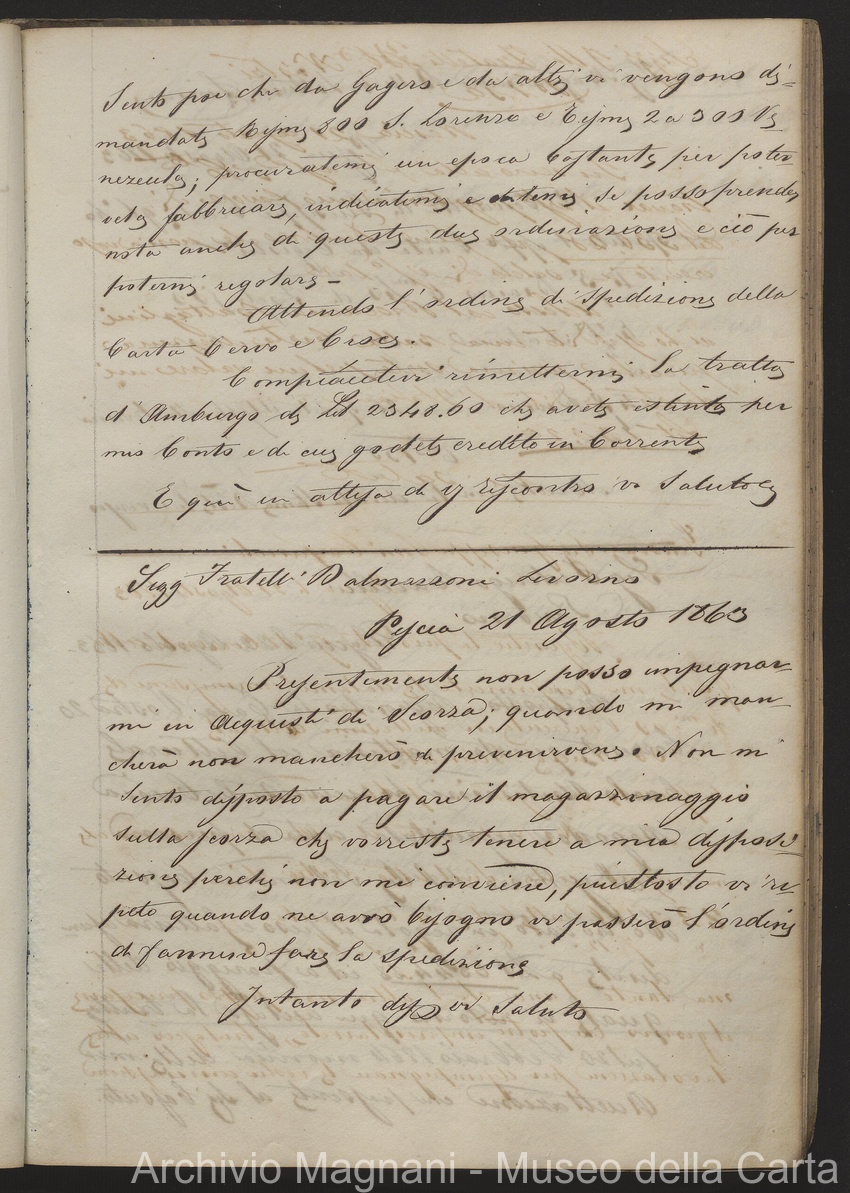 Sento poi che da Gagers e da altri vi vengono di=
mandate Risme 800 S. Lorenzo e Risme 2 a 300 Ve
nezuela; procuratemi un epoca bastante per poter
vele fabbricare, indicatemi e ditemi se posso prendere
nota anche di queste due ordinazioni e ciò per
potermi regolare –
Attendo l'ordine di spedizione della
Carta Cervo e Croce.
Compiacetevi rimettermi la tratta
d'Amburgo di 2348.60 che avete estinta per
mio Conto e di cui godete credito in Corrente
E qui in attesa di riscontro vi Saluto
Sigg Fratelli Dalmazzoni Livorno
Pescia 21 Agosto 1863
Presentemente non posso impegnar=
mi in Acquisti di Scorza; quando mi man=
cherà non mancherò di prevenirvene. Non mi
sento disposto a pagare il magazzinaggio
sulla scorza che vorreste tenere a mia disposi=
zione perchè non mi conviene, piuttosto vi ri=
peto quando ne avrò bisogno vi passerò l'ordine
di farmene fare la spedizione
Intanto vi Saluto
Archivio Magnani - Museo della Carta